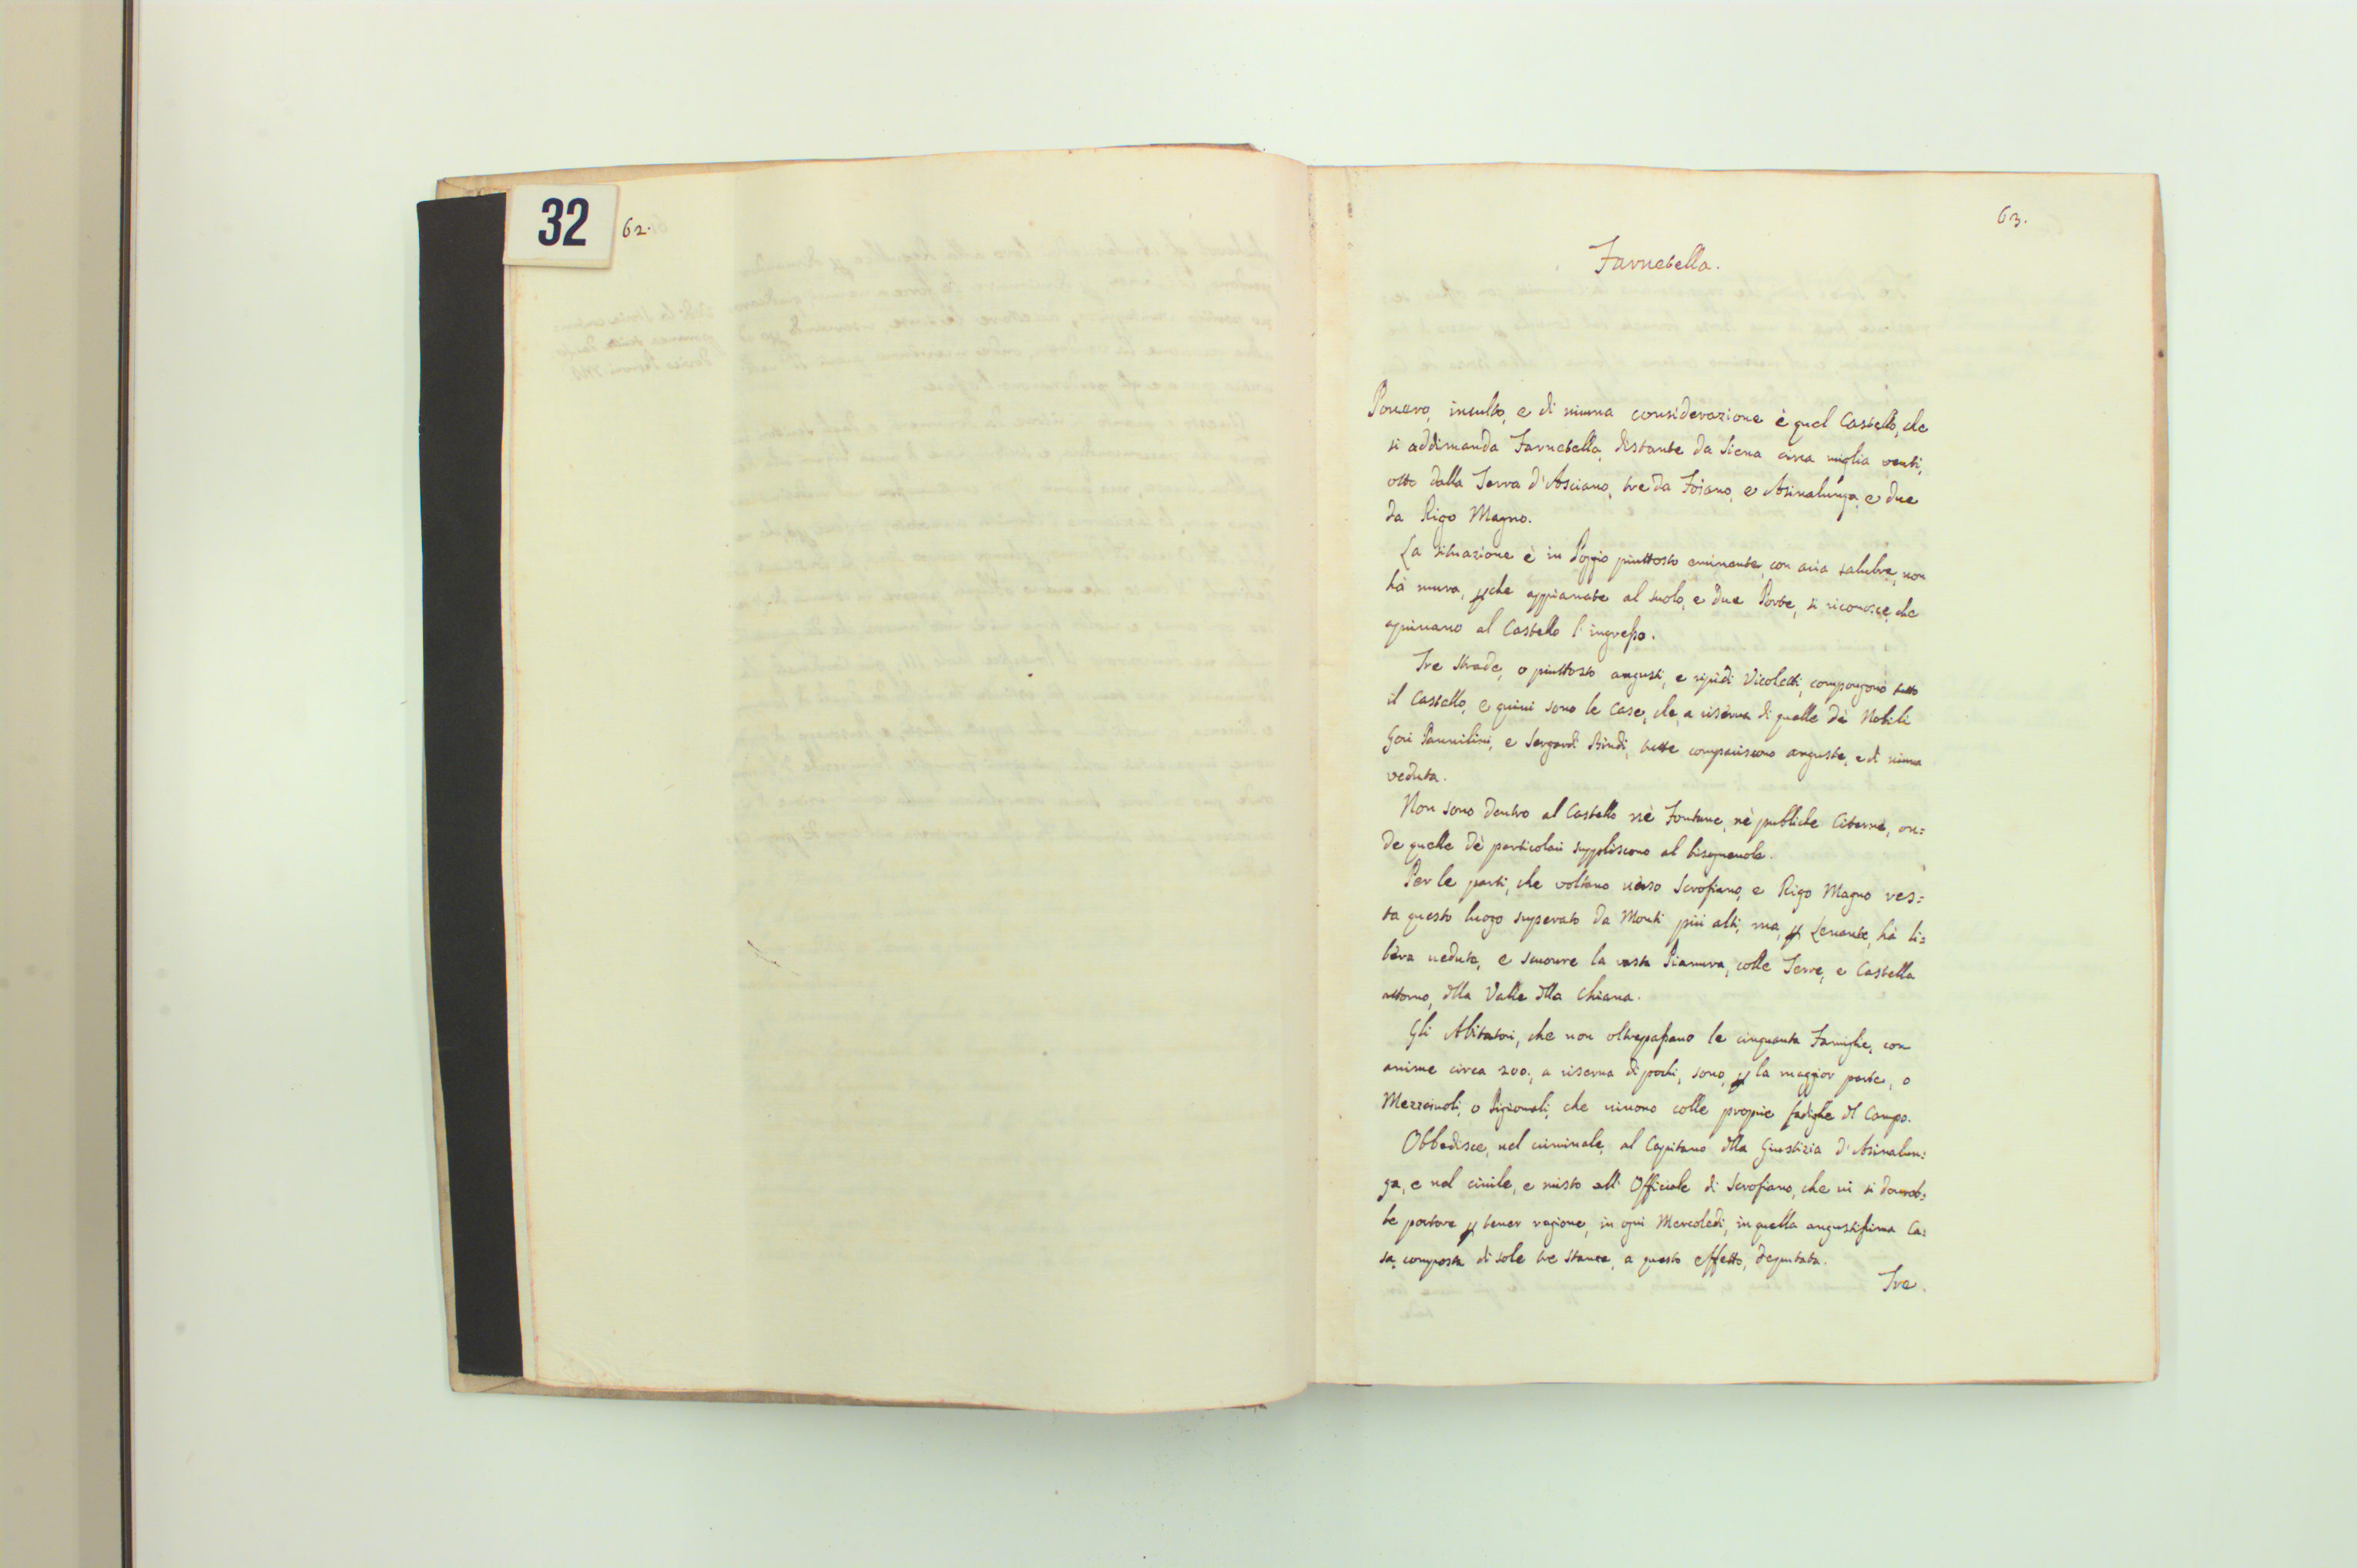 32
62.
63.
Farnetella.
Povero, inculto, e di niuna considerazione è quel Castello, che
si addimanda Farnetella, distante da Siena circa miglia venti,
otto dalla Terra d'Asciano, tre da Fojano, e Asinalunga, e due
da Rigo Magno.
La situazione è in Poggio piuttosto eminente, con aria salubre, non
hà mura, perche appianate al suolo, e due Porte, si riconosce, che
aprivano al Castello l'ingresso.
Tre Strade, o piuttosto angusti, e ripidi Vicoletti, compongono tutto
il Castello, e quivi sono le Case, che, a riserva di quelle dè Nobili
Gori Pannilini, e Sergardi Bindi, tutte compariscono anguste, e di niuna
veduta.
Non sono dentro al Castello nè Fontane, nè publiche Citerne, on:
de quelle dè particolari suppliscono al bisognevole.
Per le parti, che voltano verso Scrofiano, e Rigo Magno res:
ta questo luogo superato da Monti più alti, ma, per Levante, hà li:
bera veduta, e scuopre la vasta Pianura, colle Terre, e Castella
attorno, della Valle della Chiana.
Gli Abitatori, che non oltrepassano le cinquanta Famiglie, con
anime circa 200., a riserva di pochi, sono, per la maggior parte, o
Mezzaiuoli, o Pigionali, che vivono colle proprie fatighe del Campo.
Obbedisce, nel criminale, al Capitano della Giustizia d'Asinalun:
ga, e nel civile, e misto all'Officiale di Scrofiano, che vi si dovreb:
be portare per tener ragione, in ogni Mercoledì, in quella angustissima Ca:
sa, composta di sole tre stanze, a questo effetto, deputata.
Tre